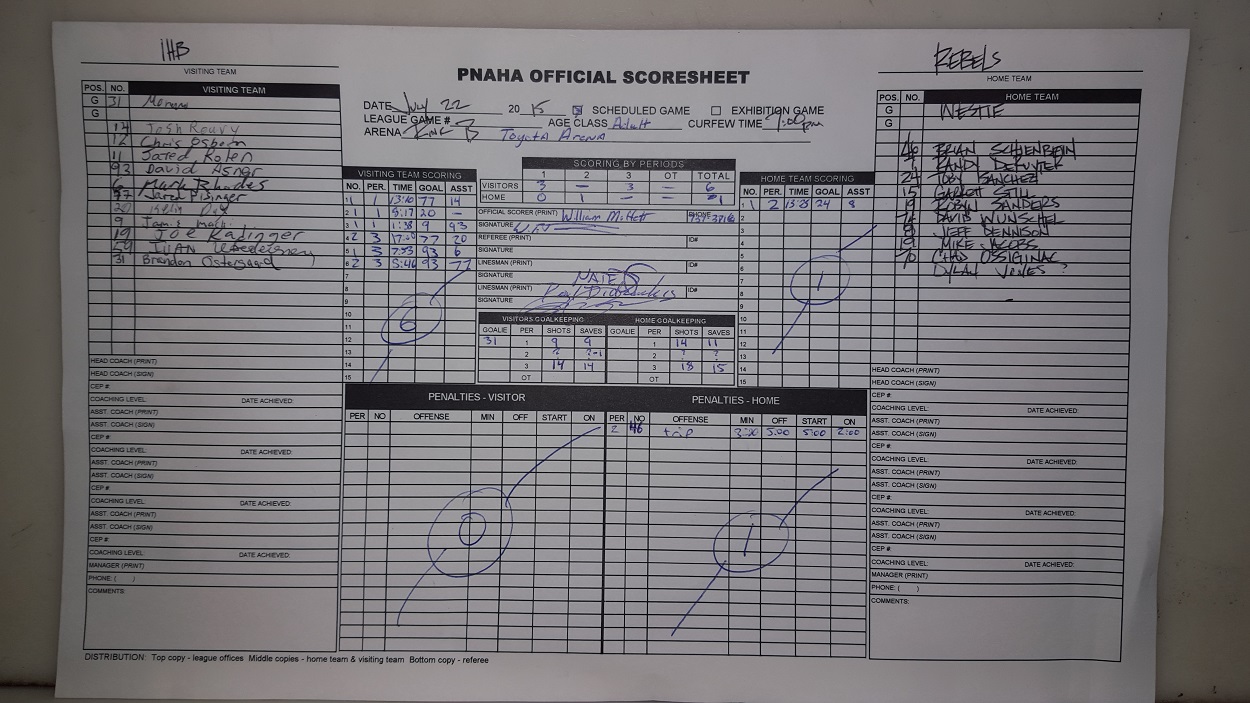 IHB
VISITING TEAM
PNAHA OFFICIAL SCORESHEET
REBELS
HOME TEAM
DATE July 22 2015 SCHEDULED GAME EXHIBITION GAME
LEAGUE GAME # AGE CLASS Adult CURFEW TIME
ARENA Toyota Arena
POS. NO. VISITING TEAM
G 31
G
14 Josh
12 Chris Osborn
11 Jared Kolen
93 David
6 Mark Rhodes
77 Jared Pisinger
20
9
19 Joe Kadinger
59 IUAN
31 Brandon Ostergaard
HEAD COACH (PRINT)
HEAD COACH (SIGN)
CEP #
COACHING LEVEL: DATE ACHIEVED:
ASST. COACH (PRINT)
ASST. COACH (SIGN)
CEP #
COACHING LEVEL: DATE ACHIEVED:
ASST. COACH (PRINT)
ASST. COACH (SIGN)
CEP #
COACHING LEVEL: DATE ACHIEVED:
ASST. COACH (PRINT)
ASST. COACH (SIGN)
CEP #
COACHING LEVEL: DATE ACHIEVED:
MANAGER (PRINT)
PHONE: ( )
COMMENTS:
VISITING TEAM SCORING
NO. PER. TIME GOAL ASST
1 1 1 13:10 77 14
2 1 1 5:17 20 —
3 1 1 1:38 9 93
4 2 3 77 20
5 1 3 7:53 93 6
6 2 3 5:46 93 77
7
8
9
10
11
12
13
14
15
6
SCORING BY PERIODS
1 2 3 OT TOTAL
VISITORS 3 — 3 — 6
HOME 0 1 — — 1
OFFICIAL SCORER (PRINT) William PHONE
SIGNATURE
REFEREE (PRINT) ID#
SIGNATURE
LINESMAN (PRINT) ID#
SIGNATURE
LINESMAN (PRINT) ID#
SIGNATURE
VISITORS GOALKEEPING HOME GOALKEEPING
GOALIE PER SHOTS SAVES GOALIE PER SHOTS SAVES
31 1 9 9 1 14 11
2 ? ?-1 2 ? ?
3 14 14 3 18 15
OT OT
HOME TEAM SCORING
NO. PER. TIME GOAL ASST
1 1 2 13:25 24 8
2
3
4
5
6
7
8
9
10
11
12
13
14
15
1
POS. NO. HOME TEAM
G WESTIE
G
46 BRIAN SCHIENBEIN
RANDY DEPUNTER
24 TOBY SANCHEZ
15 GARRETT STILL
19 ROBYN SANDERS
DAVID WUNSCHEL
8 JEFF DENNISON
19 MIKE JACOBS
CHAD OSSIGINAC
DYLAN JONES ?
HEAD COACH (PRINT)
HEAD COACH (SIGN)
CEP #
COACHING LEVEL: DATE ACHIEVED:
ASST. COACH (PRINT)
ASST. COACH (SIGN)
CEP #
COACHING LEVEL: DATE ACHIEVED:
ASST. COACH (PRINT)
ASST. COACH (SIGN)
CEP #
COACHING LEVEL: DATE ACHIEVED:
ASST. COACH (PRINT)
ASST. COACH (SIGN)
CEP #
COACHING LEVEL: DATE ACHIEVED:
MANAGER (PRINT)
PHONE: ( )
COMMENTS:
PENALTIES - VISITOR PENALTIES - HOME
PER NO OFFENSE MIN OFF START ON PER NO OFFENSE MIN OFF START ON
2 46 trip 3:00 5:00 5:00 2:00
0 1
DISTRIBUTION: Top copy - league offices Middle copies - home team & visiting team Bottom copy - referee